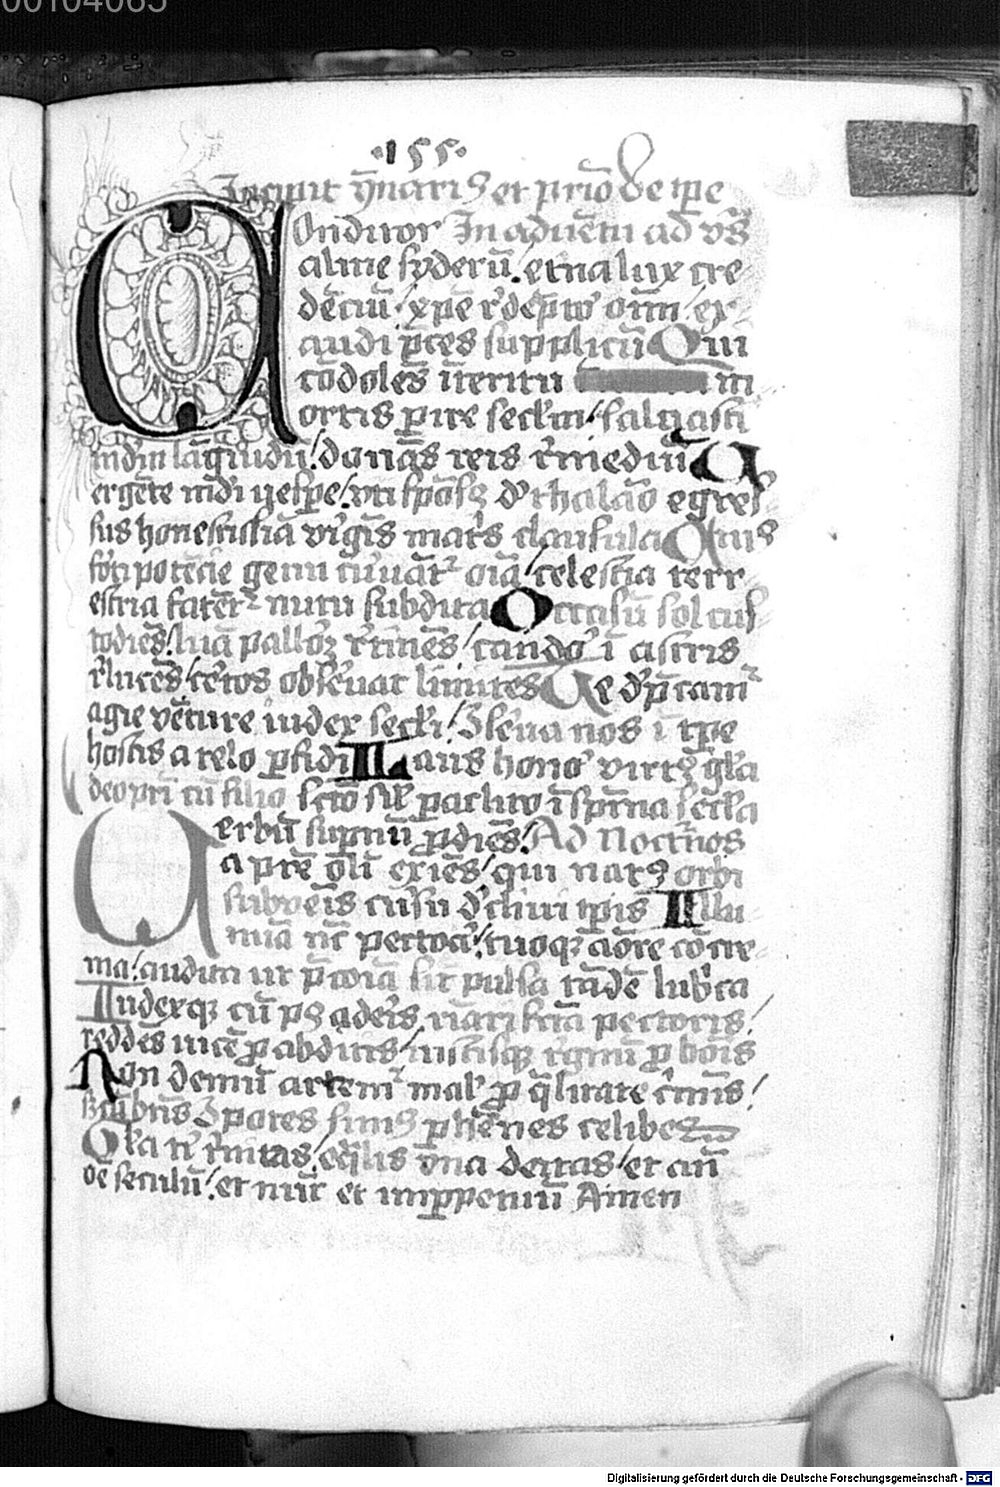 00104065
·155·
Incipit ỹnariꝰ et prĩo de tꝑe
Onditor In aduẽtu ad vꝰꝑ
alme syderũ. etna lux cre
dẽciũ / xp̃e rͤdẽptoͬ om̃ / ex
audi p̃ces supplicũ Qui
cõdolẽs ĩteritu m
ortis ꝑire secłm / saluasti
mͬdm lãguidũ / donãs reis rͤmediũ V
ergẽte mͬdi vesꝑe / vti spõsꝰ dͤ thalão egres
sus honestissiã virgĩs matͬs clausula Cuiꝰ
forti potẽcie genu curuãtͬ oĩa / celestia terr
estria fatẽtͬ nutu subdita Occasũ sol cus
todiẽs / lũa palloꝝ rͤtinẽs / candoͬ ĩ astris
rͤlucẽs / cͤtos obsͤuat limites Te dͤp̃camͬ
agie vẽture iudex secłi / Ↄsͤua nos ĩ tꝑe
hostis a telo ꝑfidi Laus honoͬ virtꝰ głia
deo pr̃i cũ filio scto sił paclito ĩ spͬna secła
erbũ suꝑnũ ꝓdiẽs / Ad Nocturnos
a pr̃e oli exiẽs / qui natꝰ orbi
subueĩs cursu dͤcliui tꝑis Illu
mĩa nũc pectoͬa / tuoqꝫ aͫore cõcre
ma / audita vt p̃coia sĩt pulsa tãdẽ lubͬca
Iudexqꝫ cũ pꝰ aderis rĩari fctã pectoris /
reddẽs vicẽ ꝓ abditis / iustisqꝫ rͤgnũ ꝓ bõis
Non demũ artemͬ malͬ ꝓ q̃litate cͬmĩs /
sꝫ cũ btĩs Ↄpotes simꝰ ꝑhẽnes celibes
Głia tiͬ tͬnitas / eq̃lis vna deitas / et añ
oẽ seculũ / et nũc et imꝑpetuũ Amen
Digitalisierung gefördert durch die Deutsche Forschungsgemeinschaft - DFG